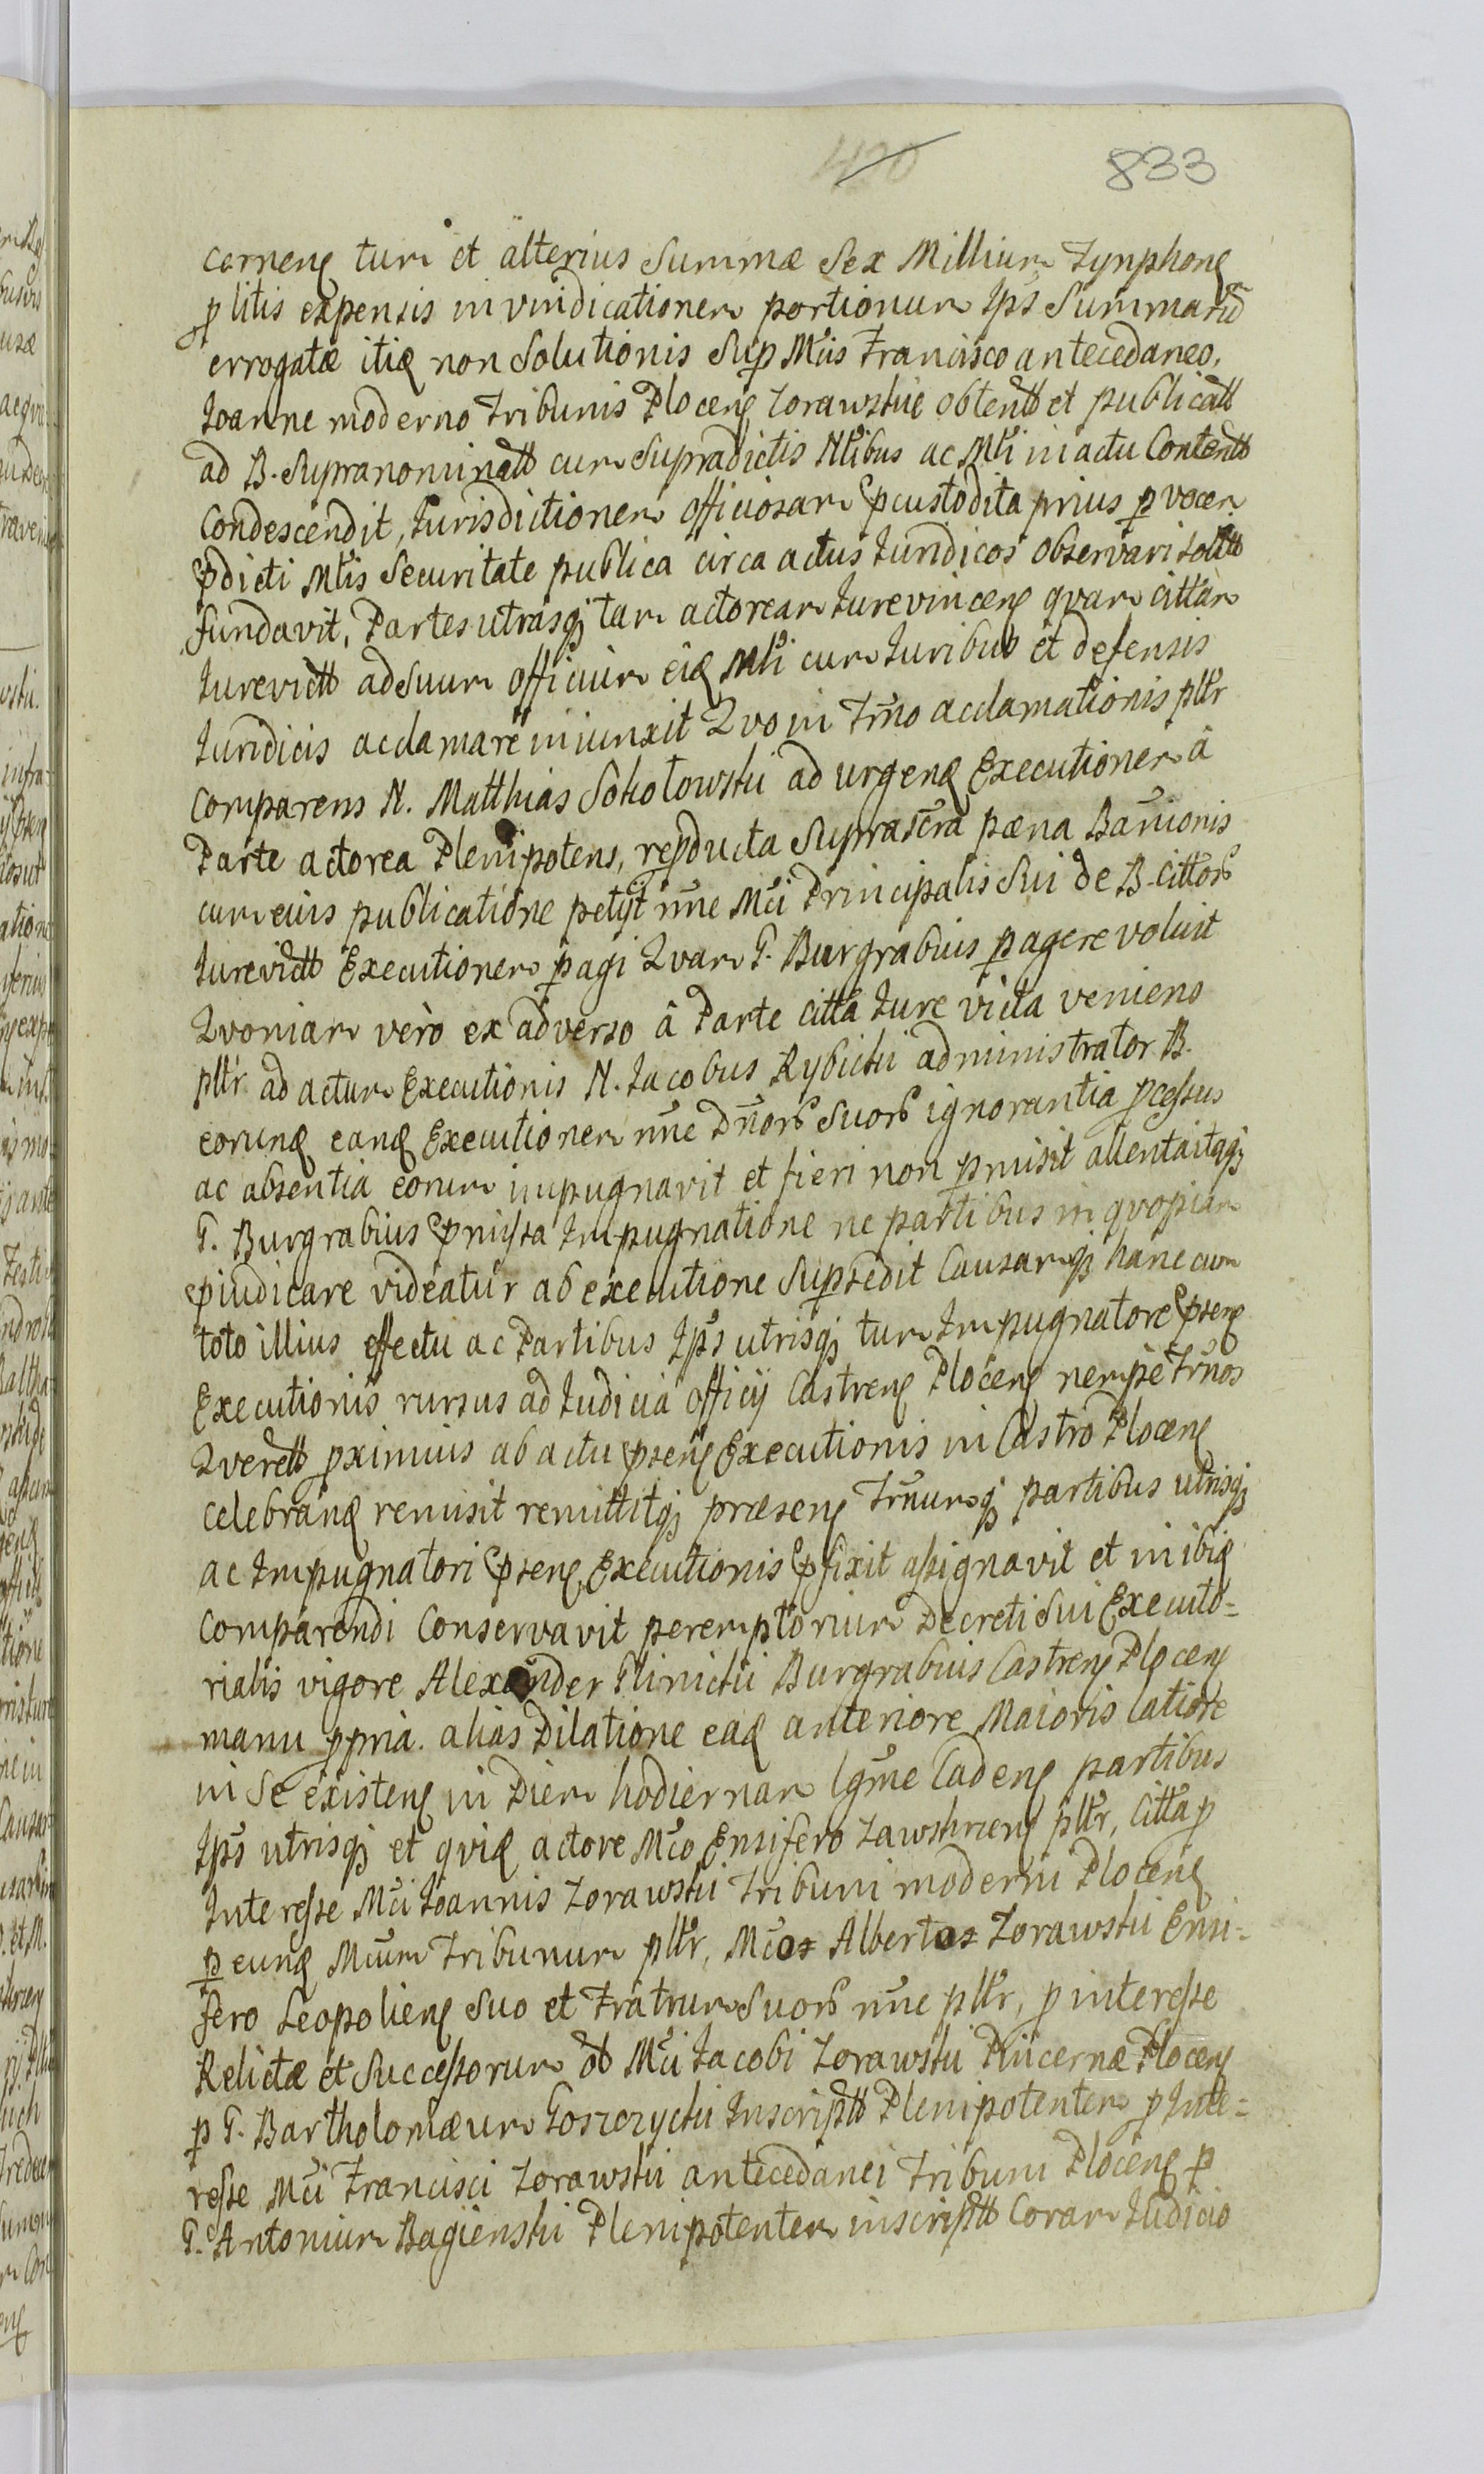 420 833
cernens tum et alterius Summæ Sex Millium Tynphons
p litis expensis in vindicationem portionum Ips Summarũ
errogatæ itiq non Solutionis Sup Mcis Francisco antecedaneo,
Ioanne moderno Tribunis Plocens Zorawskie obtentt et publicatt
ad B. Supranominatt cum Supradictis Nlibus ac Mli in actu Contentt
Condescendit, Iurisdictionem officiosam pcustodita prius p vocem
pdicti Mlis Securitate publica circa actus Iuridicos observari solitt
fundavit, Partes utrasqj tam actoream Iurevincens qvam cittam
Iurevictt ad Suum officium eiq Mli cum Iuribus et defensis
Iuridicis acclamare iniunxit Qvo in Trno acclamationis pltr
Comparens N. Matthias Sokołowski ad urgens Executionem â
Parte actorea Plenipotens, repducta Suprascra pæna Banionis
cum eius publicatione petÿt nne Mci Principalis Sui de B. Cittor
Iurevictt Executionem pagi Qvam G. Burgrabius pagere voluit
Qvoniam verò ex adverso â Parte citta Iure victa veniens
pltr ad actum Executionis N. Iacobus Rybicki administrator B.
eorunq eanq Executionem nne Dnor Suor ignorantia pcessus
ac absentia eorum impugnavit et fieri non pmisit attentaitaqj
G. Burgrabius pmissa Impugnatione ne partibus in qvopiam
piudicare videatur ab executione Supsedit Causamqj hanc cum
toto illius effectu ac Partibus Ips utrisqj tum Impugnatore psens
Executionis rursus ad Iudicia officij Castrens Plocens nempe Trnos
Qverett pximius ab actu psens Executionis in Castro Plocens
celebranq remisit remittitqj præsens Trnumqj partibus utrisqj
ac Impugnatori psens Executionis pfixit assignavit et inibiq
Comparendi Conservavit peremptorium Decreti Sui Executo=
rialis vigore Alexander Glinicki Burgrabius Castrens Plocens
manu ppria. alias Dilatione eaq anteriore Maioris latiore
in Se existens in Diem hodiernam lgme Cadens partibus
Ips utrisqj et qviq actore Mco Ensifero Zawskrzens pltr, Citta p
Interesse Mci Ioannis Zorawski Tribuni moderni Plocens
p eunq Mcum Tribunum pltr, Mcos Albertos Zorawski Ensi=
fero Leopoliens Suo et Fratrum Suor nne pltr, p interesse
Relictæ et Successorum ob Mci Iacobi Zorawski Pincernæ Plocens
p G. Bartholomæum Goszczycki Inscriptt Plenipotentem p Inte=
resse Mci Francisci Zorawski antecedanei Tribuni Plocens p
G. Antonium Bagienski Plenipotentem inscriptt Coram Iudicio